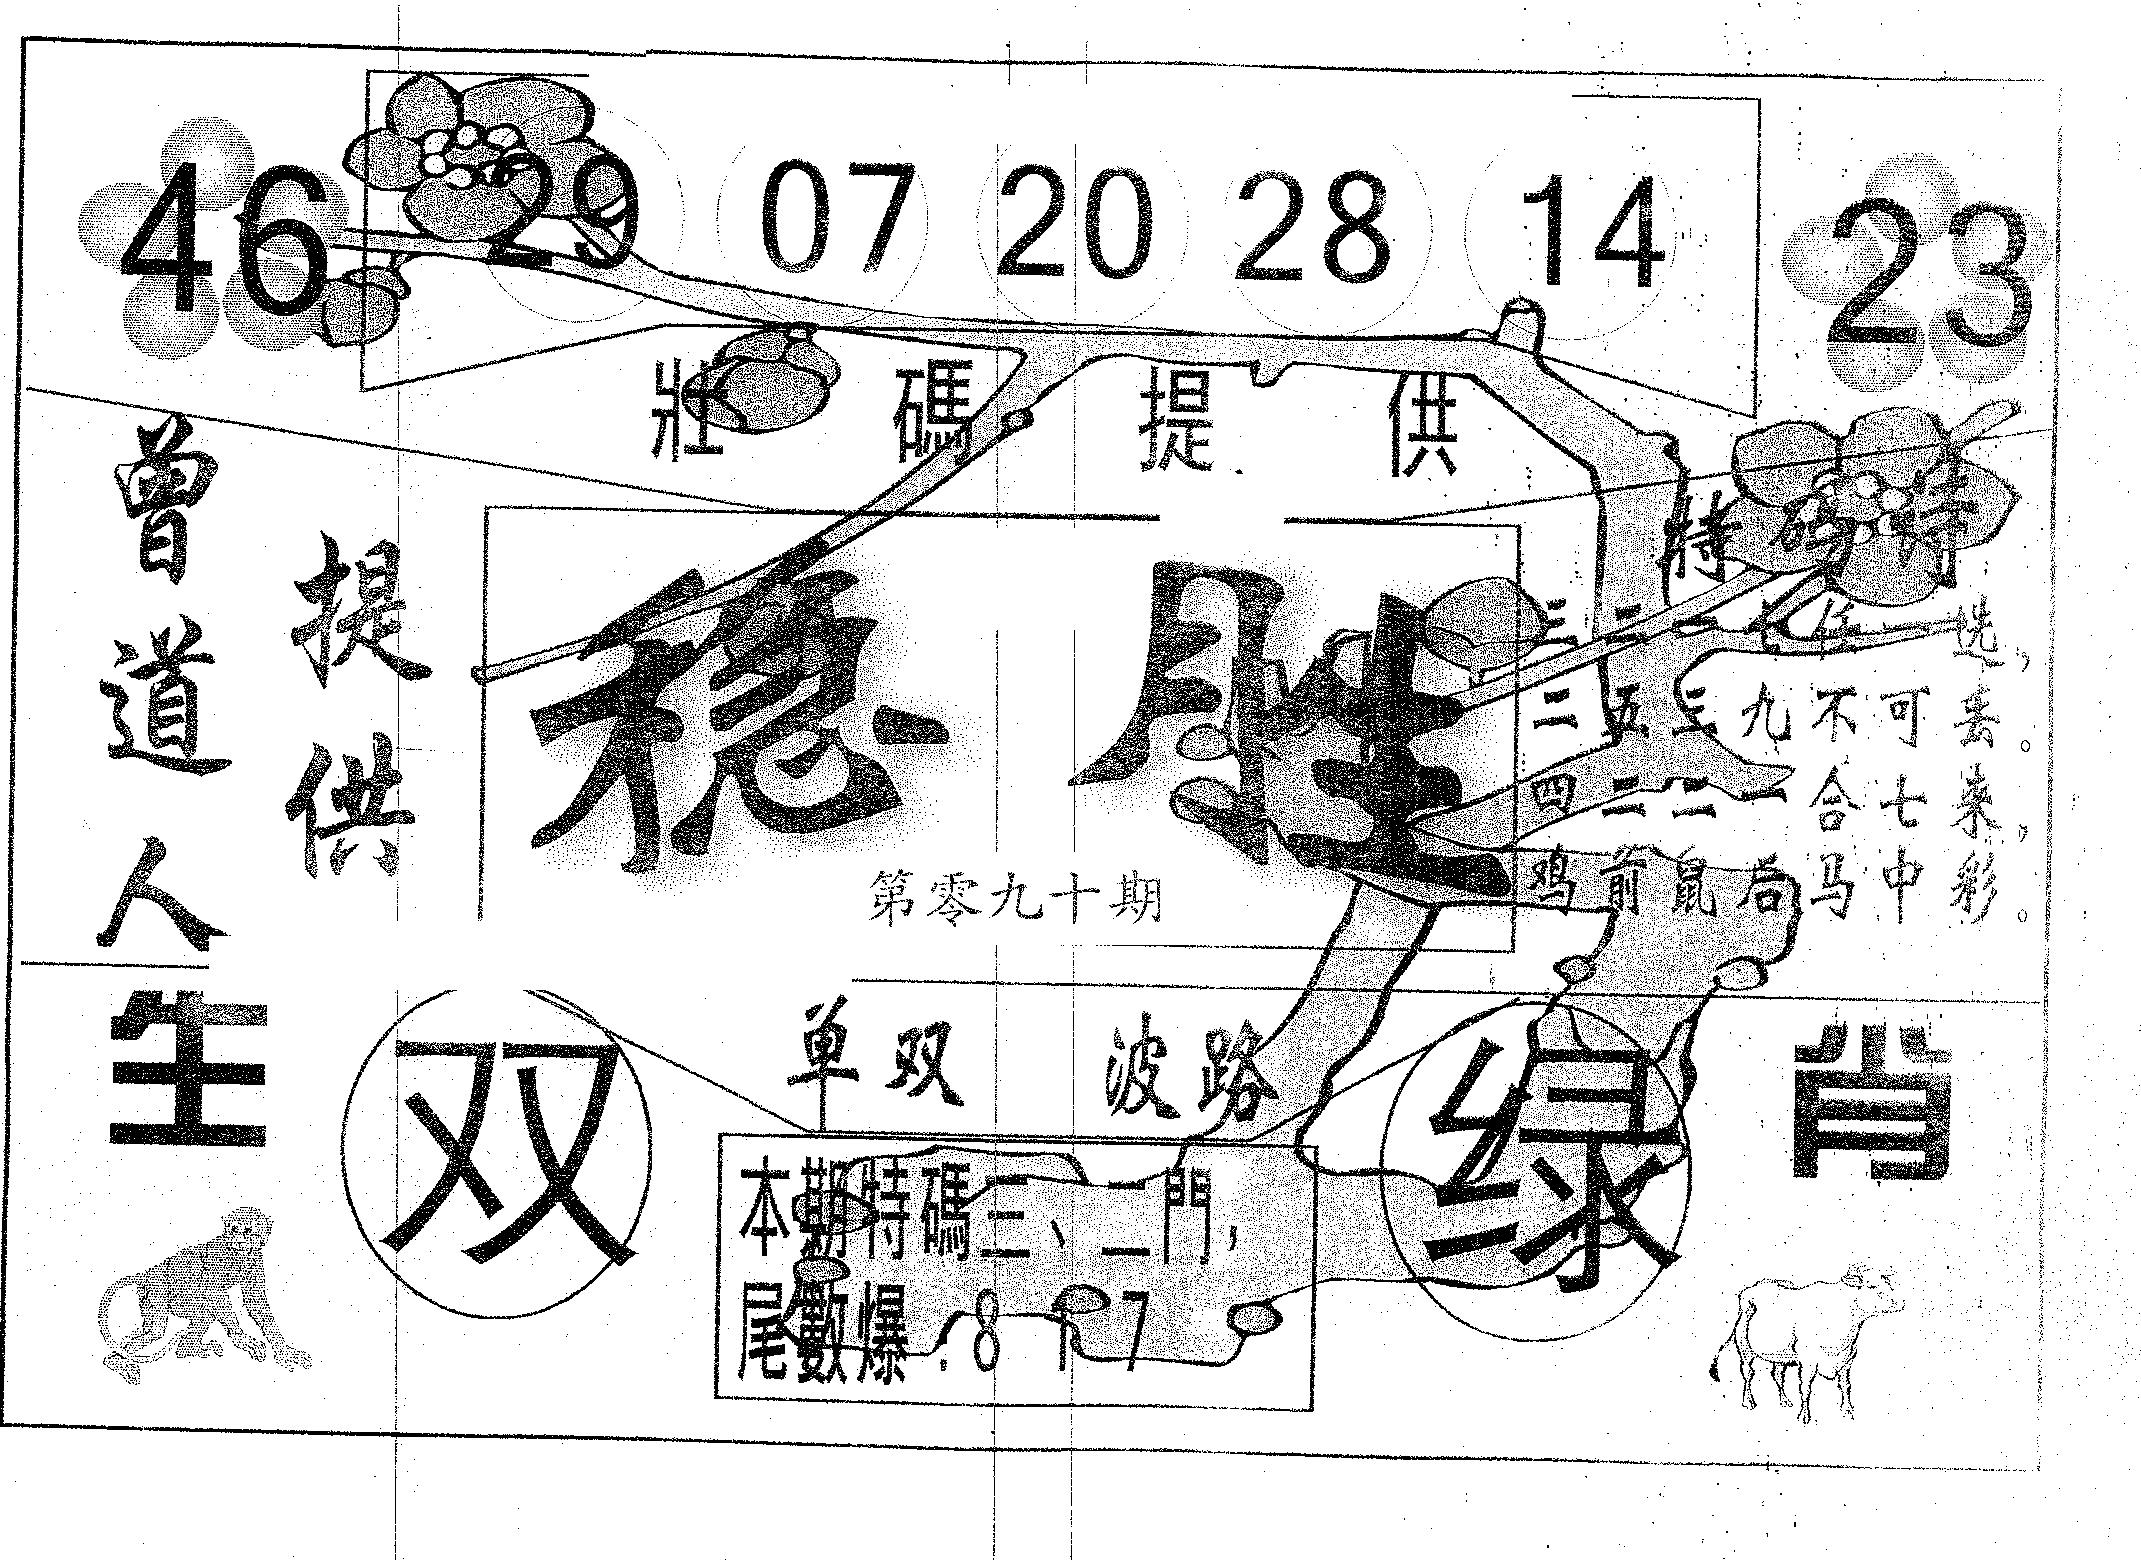 46 29 07 20 28 14 23
壯碼提供
曾道人
提供
稳胜
第零九十期
特码诗
三二一七任 选，
二五三九不可丢。
四二二一合七来，
鸡前鼠后马中彩。
生 肖
双
单双 波路
绿
本期特碼三、二門，
尾數爆:8 1 7